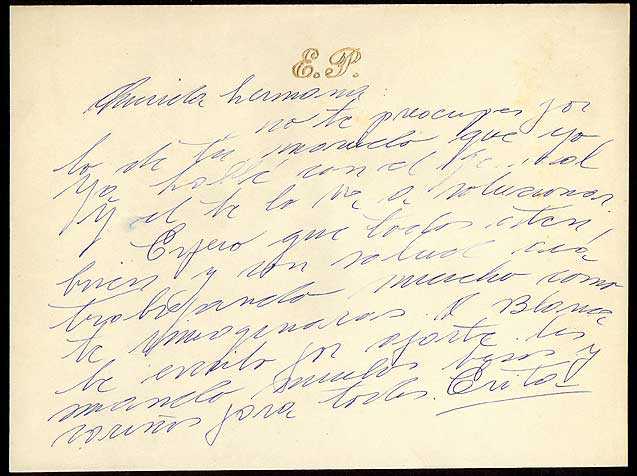 E. P.
Querida hermana:
no te preocupes por
lo de tu marido que yo
ya hablé con el general
y el te lo va a solucionar.
Espero que todos esten
bien y con salud, acá
trabajando mucho como
te imaginaras. A Blanca
le escribo por aparte. Les
mando muchos besos y
cariños para todos. Evita